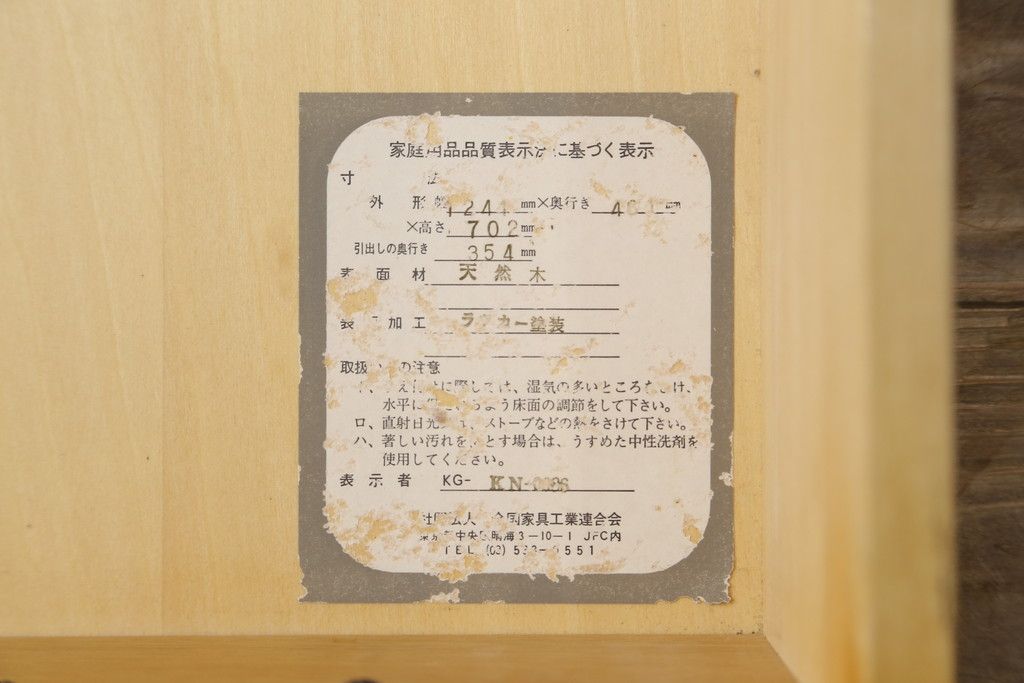 家庭用品品質表示法に基づく表示
寸 法
外 形 幅 mm×奥行き mm
×高さ 702mm
引出しの奥行き 354mm
表 面 材 天 然 木
表面加工 ラッカー塗装
取扱い の注意
据え付けに際しては、湿気の多いところをさけ、
水平に よう床面の調節をして下さい。
ロ、直射日光 、ストーブなどの熱をさけて下さい。
ハ、著しい汚れを とす場合は、うすめた中性洗剤を
使用してください。
表 示 者 KG- KN-
社団法人 全国家具工業連合会
東京都中央区晴海3-10-1 JFC内
TEL (03)